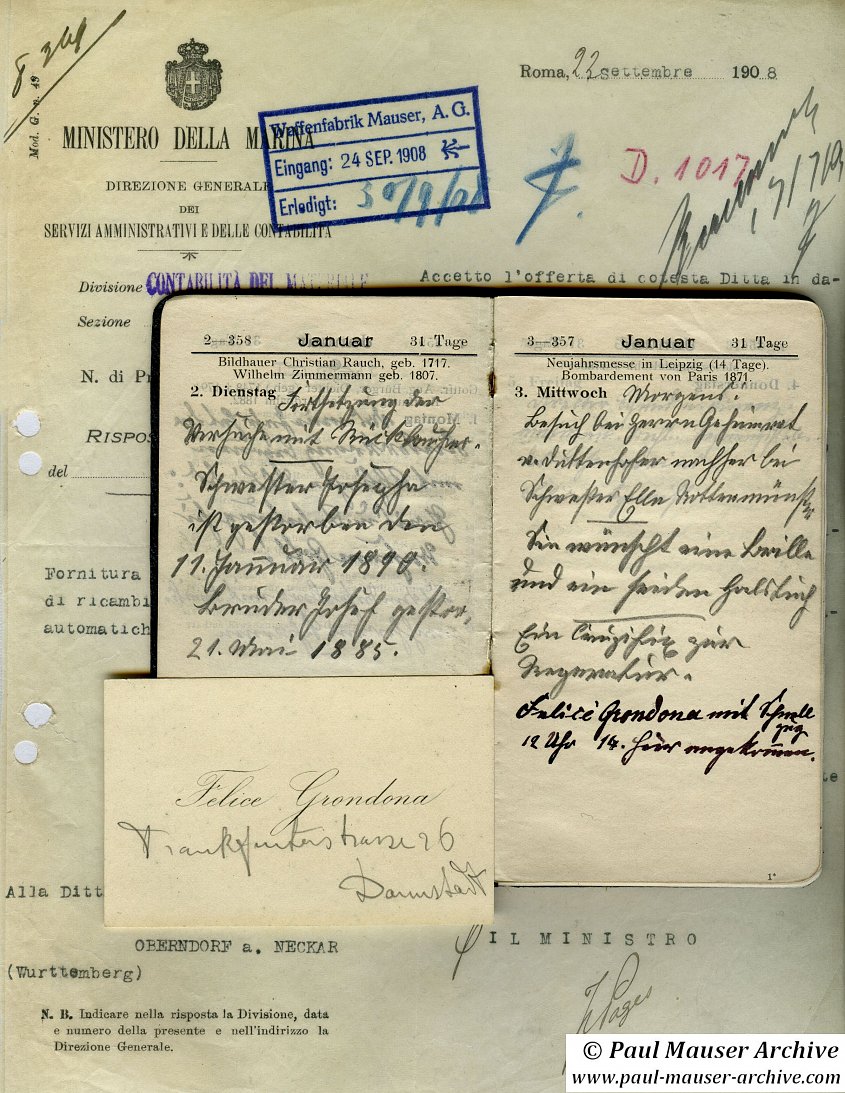 8 
Mod. G. n. 49
MINISTERO DELLA MARINA
DIREZIONE GENERALE
DEI
SERVIZI AMMINISTRATIVI E DELLE CONTABILITÀ
Divisione CONTABILITÀ DEL MATERIALE
Sezione
N. di Pr
RISPOS
del
Roma, 22 settembre 1908
Waffenfabrik Mauser, A. G.
Eingang: 24 SEP. 1908
Erledigt: 30/9/08
D. 1017
Accetto l'offerta di cotesta Ditta in da-
Fornitura
di ricambi
automatich
2-358 Januar 31 Tage
Bildhauer Christian Rauch, geb. 1717.
Wilhelm Zimmermann geb. 1807.
2. Dienstag Fortsetzung der
Versuche mit Rücklauf
Schwester Josepha
ist gestorben den
11. Januar 1890.
Bruder Josef gestor.
21. Mai 1885.
3-357 Januar 31 Tage
Neujahrsmesse in Leipzig (14 Tage).
Bombardement von Paris 1871
3. Mittwoch Morgens.
Besuch bei Herrn Geheimrat
v. Duttenhofer nachher bei
Schwester Ella Rottenmünster
Sie wünscht eine Brille
und ein seiden Halstuch
Ein Cruzifix zur
Reparatur.
Felice Grondona mit Schnell
zug
12 Uhr 14. hier angekommen.
1*
Felice Grondona
Frankfurterstrasse 26
Darmstadt
Alla Ditt
OBERNDORF a. NECKAR
(Wurttemberg)
IL MINISTRO
N. B. Indicare nella risposta la Divisione, data
e numero della presente e nell'indirizzo la
Direzione Generale.
© Paul Mauser Archive
www.paul-mauser-archive.com